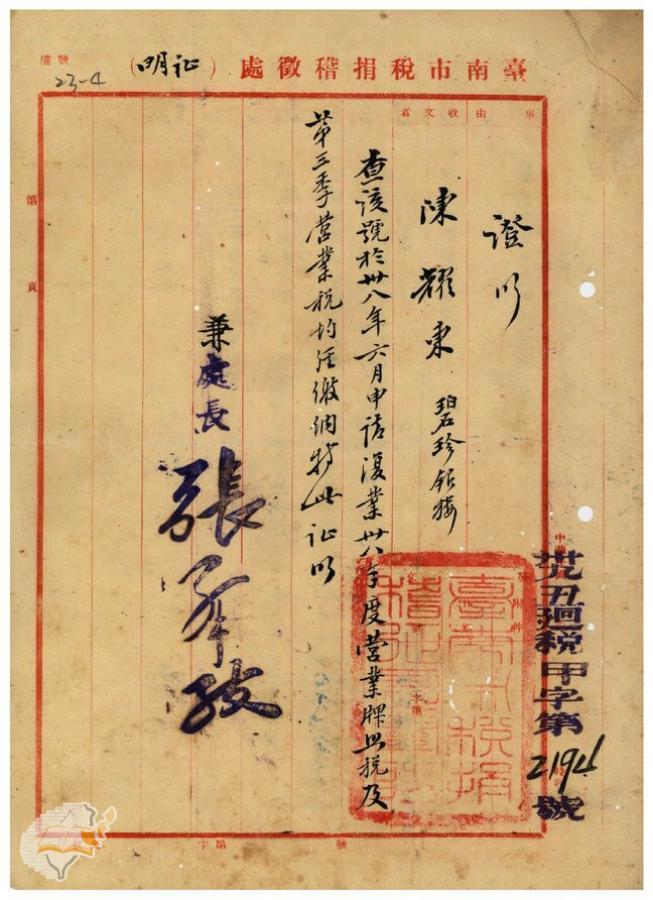 臺南市稅捐稽徵處（証明）
號
23-4
事由
收文者
證明
陳耀東 碧珍銀樓
查該號於卅八年六月申請復業卅八年度營業牌照稅及
第三季營業稅均经繳納特此证明
兼處長
張
第 頁
字第 號
廻稅甲字第2194號
臺南市稅捐稽徵處